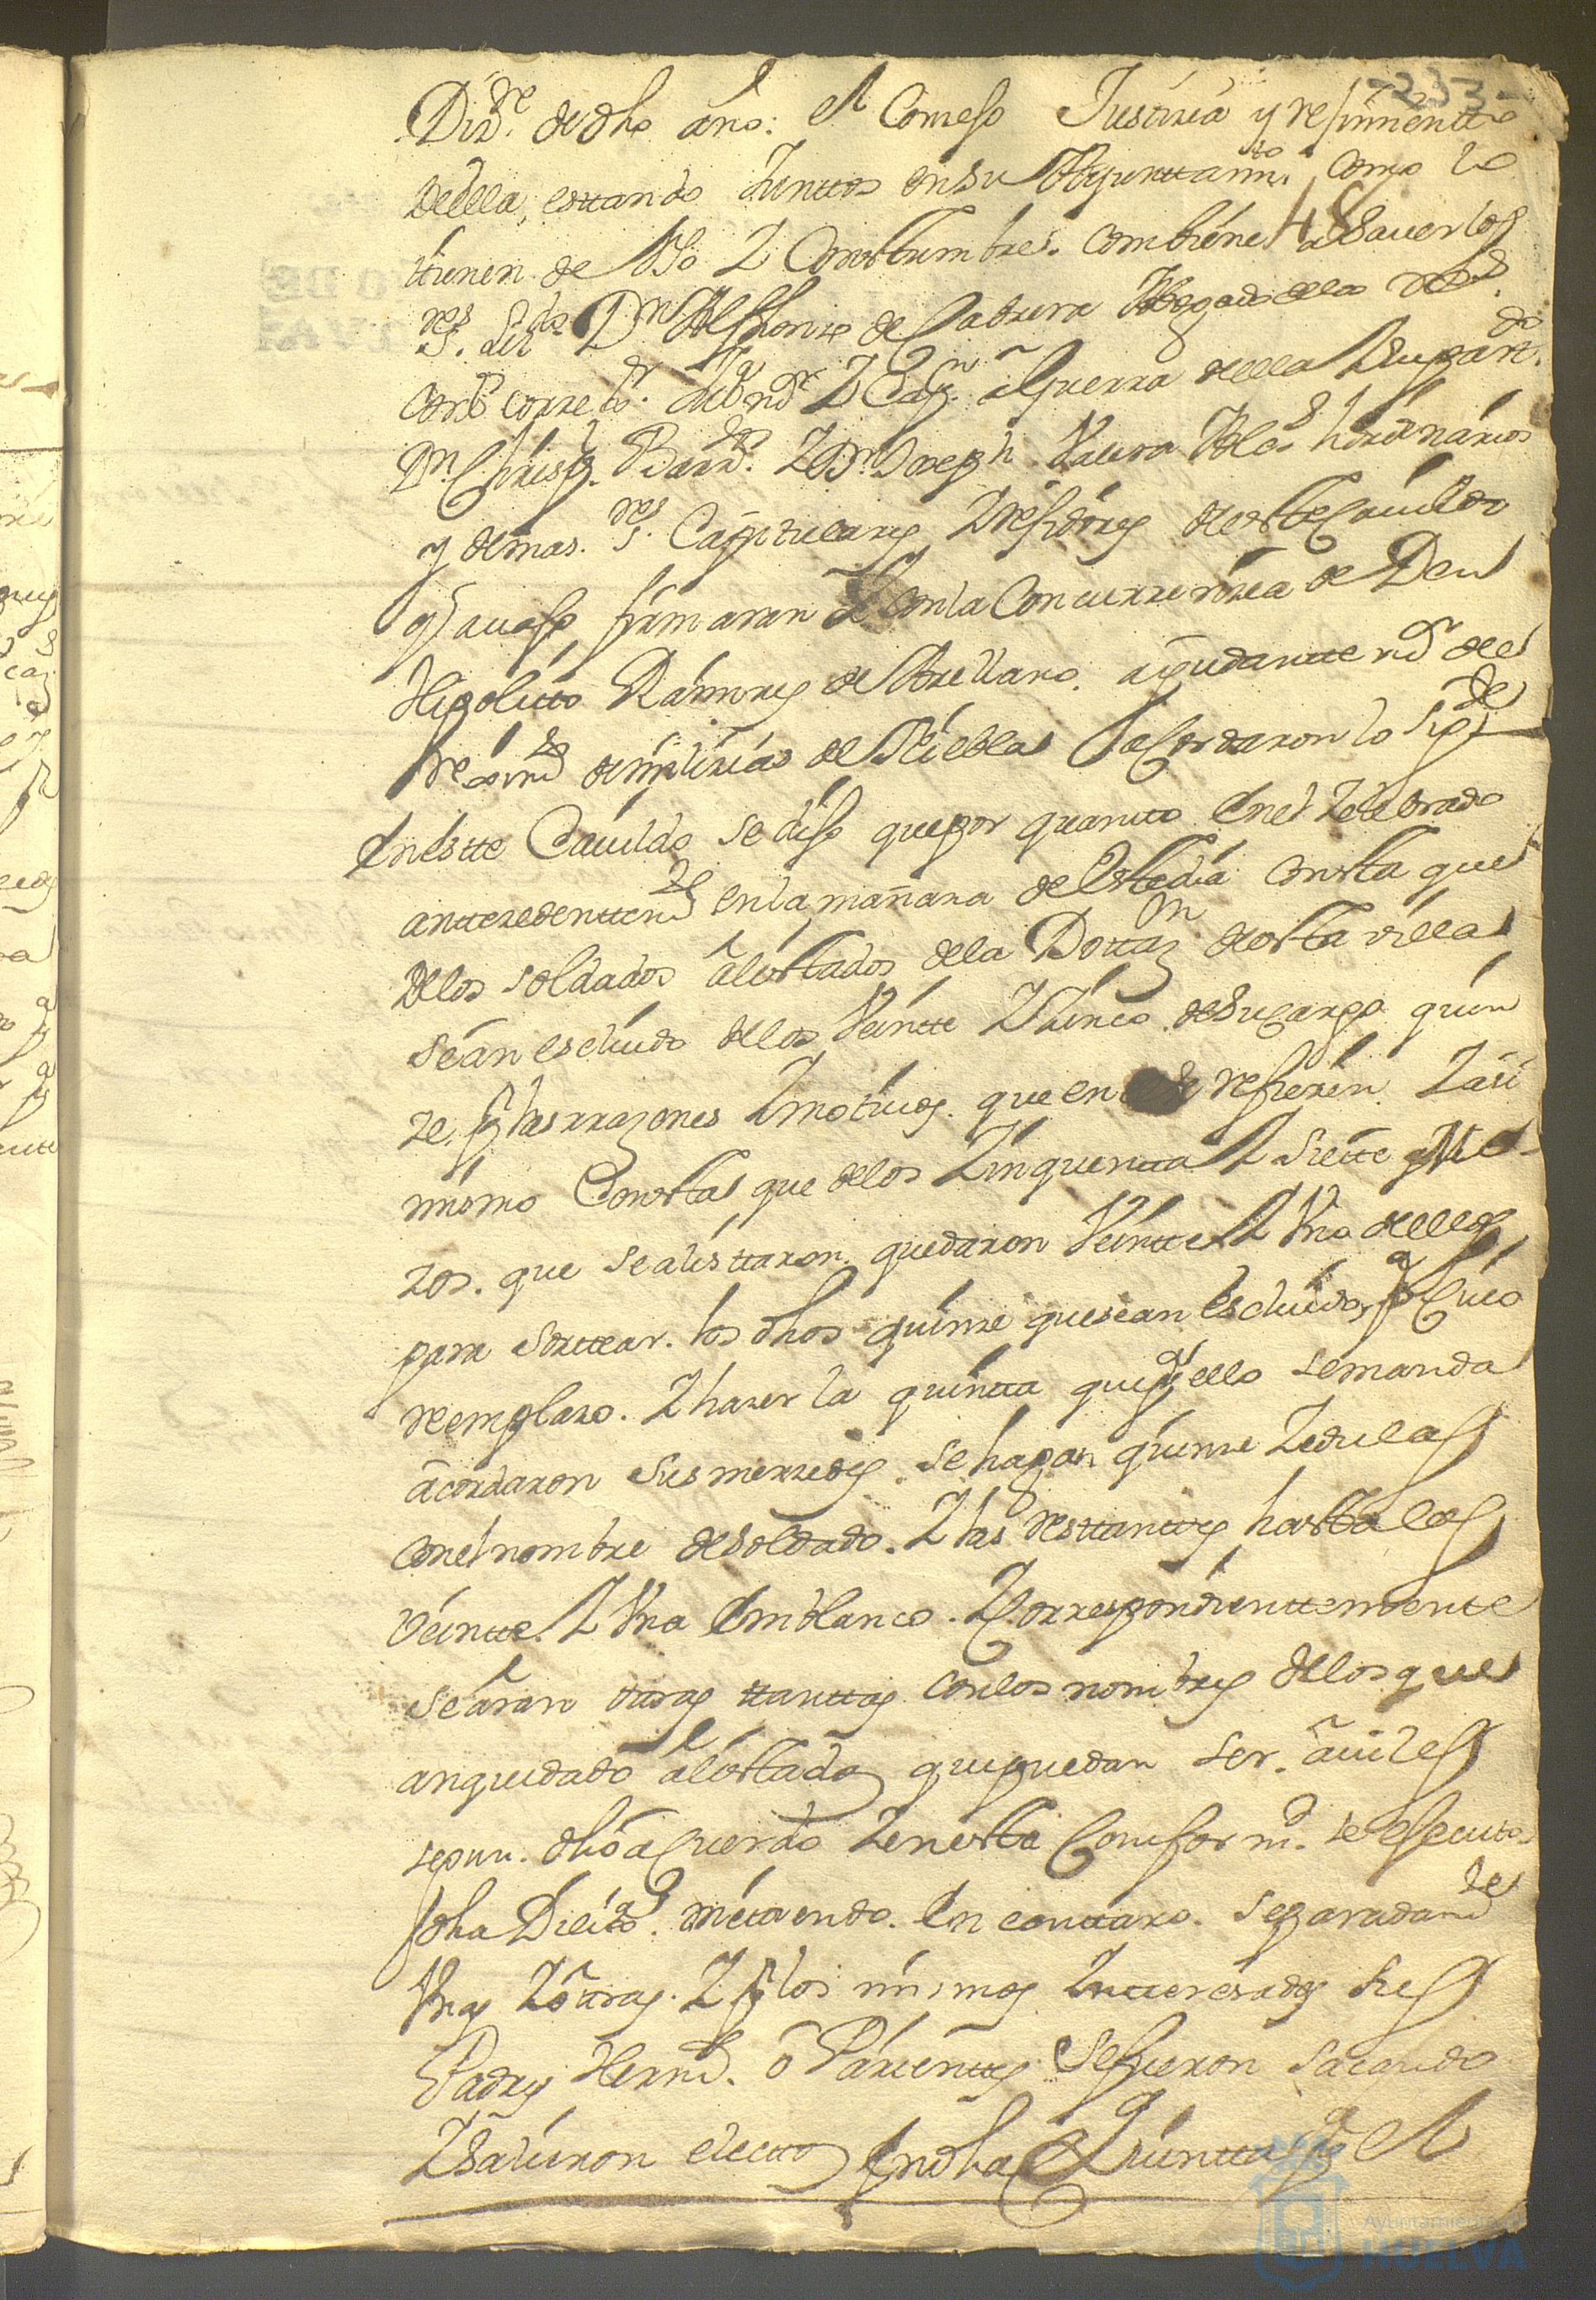 -233-
Diz.re de dho año: el Consejo Justizia y rejimientto
48
della, esttando Junttos en su Ayunttam.to como lo
ttienen de Uso Z Costtumbres. combiene a sauer los
S.res Liz.do D.n Alfhonso de Cabrera Abogado de los R.s
Cons.s corre.or Z Cap.n a Guerra della Z su partt.do
D.n Chrisp.l Z D.n Joseph Alcs. hordinarios
y demas S.res Capitulares Z Rejidores deste Cauildo
q auajo firmaran Z con la Concurrenzia de Don
Hipolitto Ramires de Arellano. ayudantte del
de milizias de Niebla Acordaron lo sig.te
En estte Cauildo se dijo que por quantto En el Zelebrado
anttezedenttem.te en la mañana de este dia Consta que
de los soldados alistados de la Dottaz.n de esta villa
se an escluido de los Veintte Z Sinco de su cargo quin
ze. p.r las rrazones Z motiuos. que en el se refieren. Z asi
mismo Consta que de los Zinquenta Z Siette Mo
zos. que se alisttaron. quedaron Veintte Z Uno dellos
para sorttear. los dhos quinze que se an escluido, p.a Cuio
reemplazo. Z hazer la quintta que p.a ello se manda
acordaron sus merzedes. se hagan quinze Zedulas
con el nombre de soldado. Z las resttanttes hasta las
veintte. Z Una En blanco. Z Correspondienttemente
se aran otras ttanttas con los nombres de los que
an quedado alistados que puedan ser. auiles
segun. dho acuerdo Z en esta Conform.d se ejecuto
dha Dilix.a mettiendo. En canttaro. separadam.te
Unas Z ottras. Z p.r los mismos Ynteresados sus
Padres Herm.s o Parienttes se fueron sacando
Z salieron electtos En dha Quintta p.a el
Ayuntamiento
HUELVA